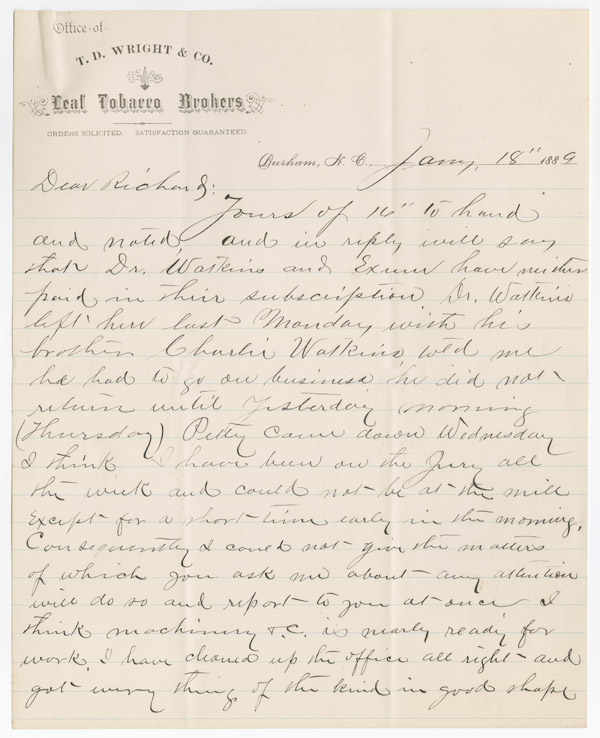 Office of
T. D. WRIGHT & CO.
Leaf Tobacco Brokers
ORDERS SOLICITED. SATISFACTION GUARANTEED.
Durham, N. C., Jany, 18" 1889
Dear Richard:
Yours of 16" to hand
and noted, and in reply will say
that Dr. Watkins and Exum have neither
paid in their subscription Dr. Watkins
left here last Monday with his
brother Charlie Watkins told me
he had to go on business he did not
return until Yesterday morning
(Thursday) Petty came down Wednesday
I think I have been on the Jury all
the week and could not be at the mill
Except for a short time early in the morning,
Consequently I could not give the matters
of which you ask me about any attention
will do so and report to you at once I
think machinery &.C. is nearly ready for
work. I have cleaned up the office all right and
got every thing of the kind in good shape